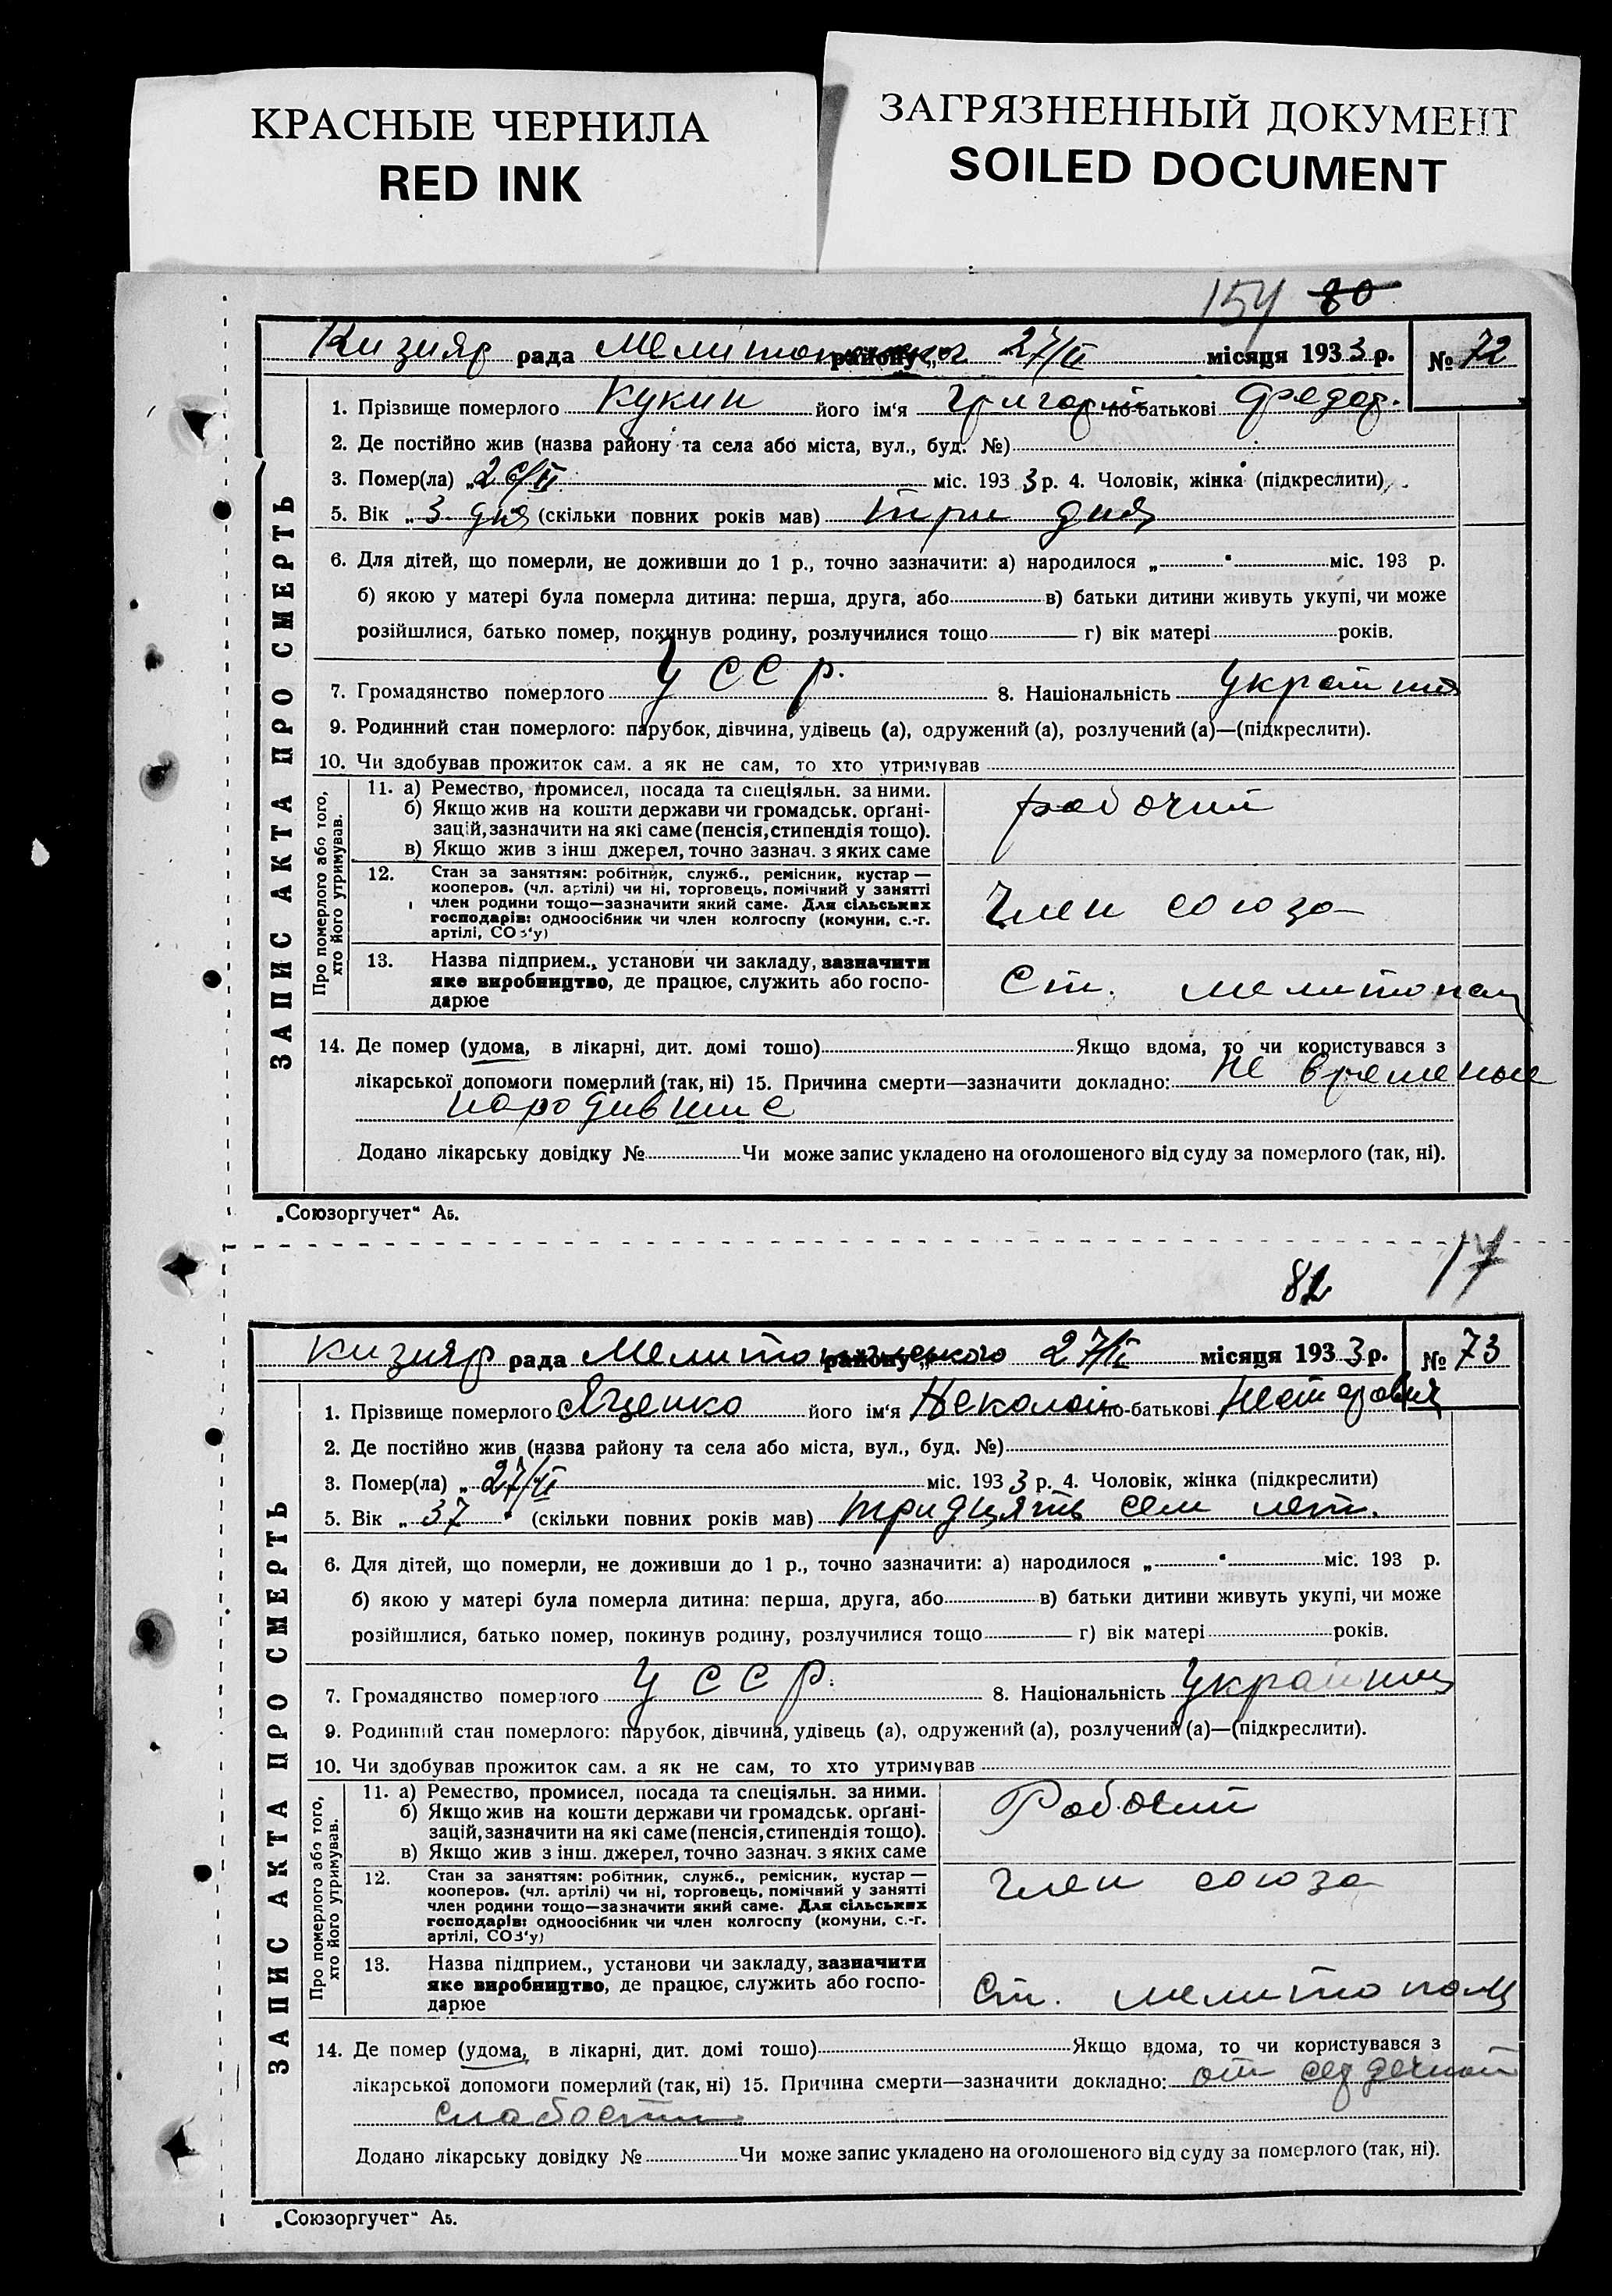 КРАСНЫЕ ЧЕРНИЛА
RED INK
ЗАГРЯЗНЕННЫЙ ДОКУМЕНТ
SOILED DOCUMENT
154 80
Кизияр рада Мелитопольского району „ 27/II місяця 1933 р. № 72
ЗАПИС АКТА ПРО СМЕРТЬ
1. Прізвище померлого Кукин його ім‘я Григорий по-батькові Федор.
2. Де постійно жив (назва району та села або міста, вул., буд. №)
3. Помер(ла) „ 26/II міс. 193 3 р. 4. Чоловік, жінка (підкреслити)
5. Вік „ 3 дня (скільки повних років мав) три дня
6. Для дітей, що померли, не доживши до 1 р., точно зазначити: а) народилося „ “ міс. 193 р.
б) якою у матері була померла дитина: перша, друга, або в) батьки дитини живуть укупі, чи може
розійшлися, батько помер, покинув родину, розлучилися тощо г) вік матері років.
7. Громадянство померлого УССР. 8. Національність
9. Родинний стан померлого: парубок, дівчина, удівець (а), одружений (а), розлучений (а)—(підкреслити).
10. Чи здобував прожиток сам. а як не сам, то хто утримував
Про померлого або того,
хто його утримував.
11. а) Ремество, промисел, посада та спеціяльн. за ними.
б) Якщо жив на кошти держави чи громадськ. орґані-
зацій, зазначити на які саме (пенсія, стипендія тощо).
в) Якщо жив з інш джерел, точно зазнач. з яких саме
рабочий
12. Стан за заняттям: робітник, служб., ремісник, кустар —
кооперов. (чл. артілі) чи ні, торговець, помічний у занятті
член родини тощо—зазначити який саме. Для сільських
господарів: одноосібник чи член колгоспу (комуни, с.-г.
артілі, СОЗ‘у)
Член союза
13. Назва підприєм., установи чи закладу, зазначити
яке виробництво, де працює, служить або госпо-
дарює
Ст. Мелитополь
14. Де помер (удома, в лікарні, дит. домі тошо) Якщо вдома, то чи користувався з
лікарської допомоги померлий (так, ні) 15. Причина смерти—зазначити докладно: не временые
народивше
Додано лікарську довідку № Чи може запис укладено на оголошеного від суду за померлого (так, ні).
„Союзоргучет“ А5.
17
Кизияр рада Мелитопольського району „ 27/II місяця 1933 р. № 73
ЗАПИС АКТА ПРО СМЕРТЬ
1. Прізвище померлого Яценко його ім‘я Неколай по-батькові Несторович
2. Де постійно жив (назва району та села або міста, вул., буд. №)
3. Помер(ла) „ 27/II міс. 193 3 р. 4. Чоловік, жінка (підкреслити)
5. Вік „ 37 “ (скільки повних років мав) тридцять сем лет.
6. Для дітей, що померли, не доживши до 1 р., точно зазначити: а) народилося „ “ міс. 193 р.
б) якою у матері була померла дитина: перша, друга, або в) батьки дитини живуть укупі, чи може
розійшлися, батько помер, покинув родину, розлучилися тощо г) вік матері років.
7. Громадянство померлого УССР. 8. Національність
9. Родинний стан померлого: парубок, дівчина, удівець (а), одружений (а), розлучений (а)—(підкреслити).
10. Чи здобував прожиток сам. а як не сам, то хто утримував
Про померлого або того,
хто його утримував.
11. а) Ремество, промисел, посада та спеціяльн. за ними.
б) Якщо жив на кошти держави чи громадськ. орґані-
зацій, зазначити на які саме (пенсія, стипендія тощо).
в) Якщо жив з інш. джерел, точно зазнач. з яких саме
Рабочий
12. Стан за заняттям: робітник, служб., ремісник, кустар —
кооперов. (чл. артілі) чи ні, торговець, помічний у занятті
член родини тощо—зазначити який саме. Для сільських
господарів: одноосібник чи член колгоспу (комуни, с.-г.
артілі, СОЗ‘у)
Член союза
13. Назва підприєм., установи чи закладу, зазначити
яке виробництво, де працює, служить або госпо-
дарює
Ст. Мелитополь
14. Де помер (удома, в лікарні, дит. домі тошо) Якщо вдома, то чи користувався з
лікарської допомоги померлий (так, ні) 15. Причина смерти—зазначити докладно: от сердечной
слабости
Додано лікарську довідку № Чи може запис укладено на оголошеного від суду за померлого (так, ні).
„Союзоргучет“ А5.